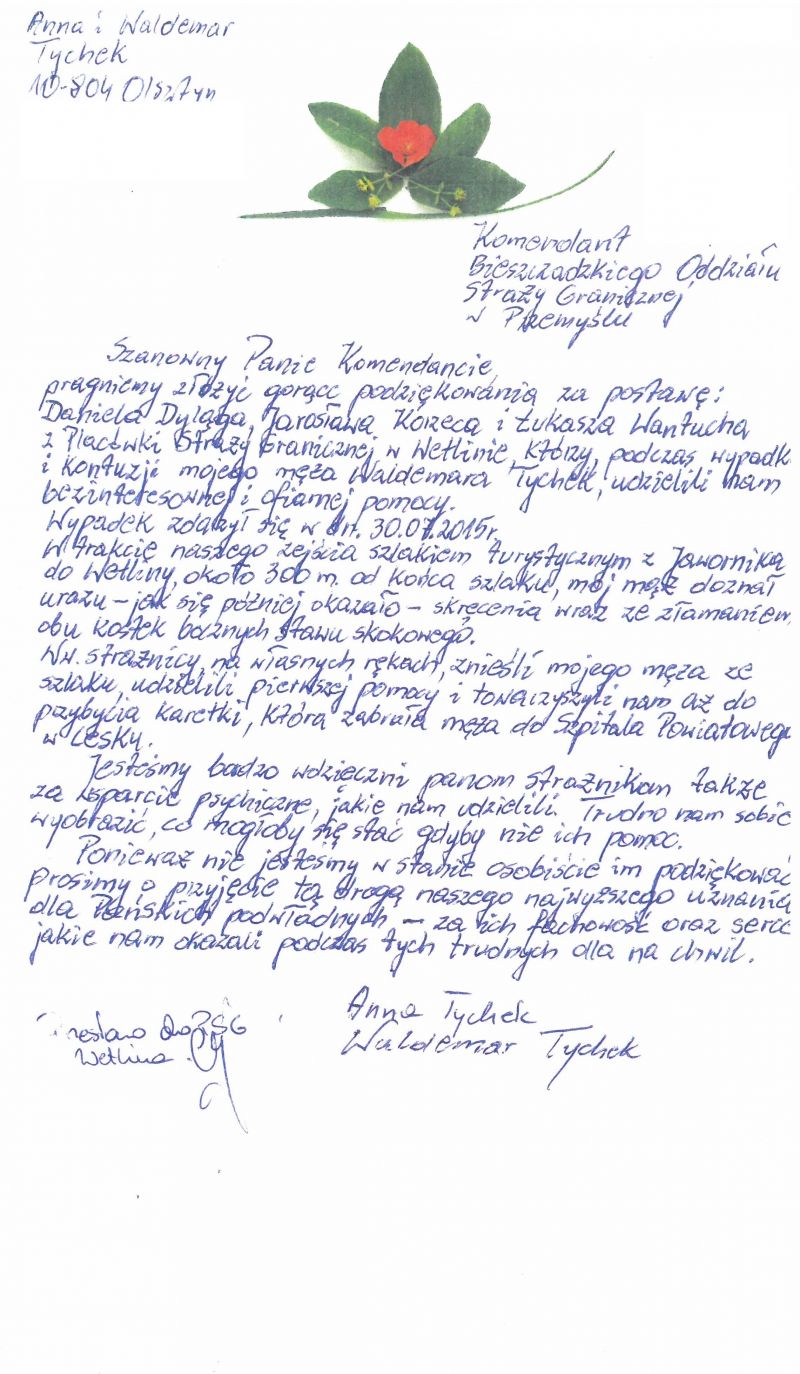 Anna i Waldemar
Tychek
10-804 Olsztyn
Komendant
Bieszczadzkiego Oddziału
Straży Granicznej
w Przemyślu
Szanowny Panie Komendancie,
pragniemy złożyć gorące podziękowania za postawę:
Daniela Dyląga, Jarosława Korzeca i Łukasza Wantucha
z Placówki Straży Granicznej w Wetlinie, którzy, podczas wypadk
i kontuzji mojego męża Waldemara Tychek, udzielili nam
bezinteresownej i ofiarnej pomocy.
Wypadek zdarzył się w dn. 30.07.2015r.
W trakcie naszego zejścia szlakiem turystycznym z Jawornika
do Wetliny, około 300 m. od końca szlaku, mój mąż doznał
urazu – jak się później okazało – skręcenia wraz ze złamaniem
obu kostek bocznych stawu skokowego.
Ww. strażnicy, na własnych rękach, znieśli mojego męża ze
szlaku, udzielili pierwszej pomocy i towarzyszyli nam aż do
przybycia karetki, która zabrała męża do Szpitala Powiatowego
w Lesku.
Jesteśmy badzo wdzięczni panom strażnikom także
za wsparcie psychiczne, jakie nam udzielili. Trudno nam sobie
wyobrazić, co mogłoby się stać gdyby nie ich pomoc.
Ponieważ nie jesteśmy w stanie osobiście im podziękować
prosimy o przyjęcie tą drogą naszego najwyższego uznania
dla Pańskich podwładnych – za ich fachowość oraz serce
jakie nam okazali podczas tych trudnych dla na chwil.
Anna Tychek
Waldemar Tychek
do PSG
Wetlina